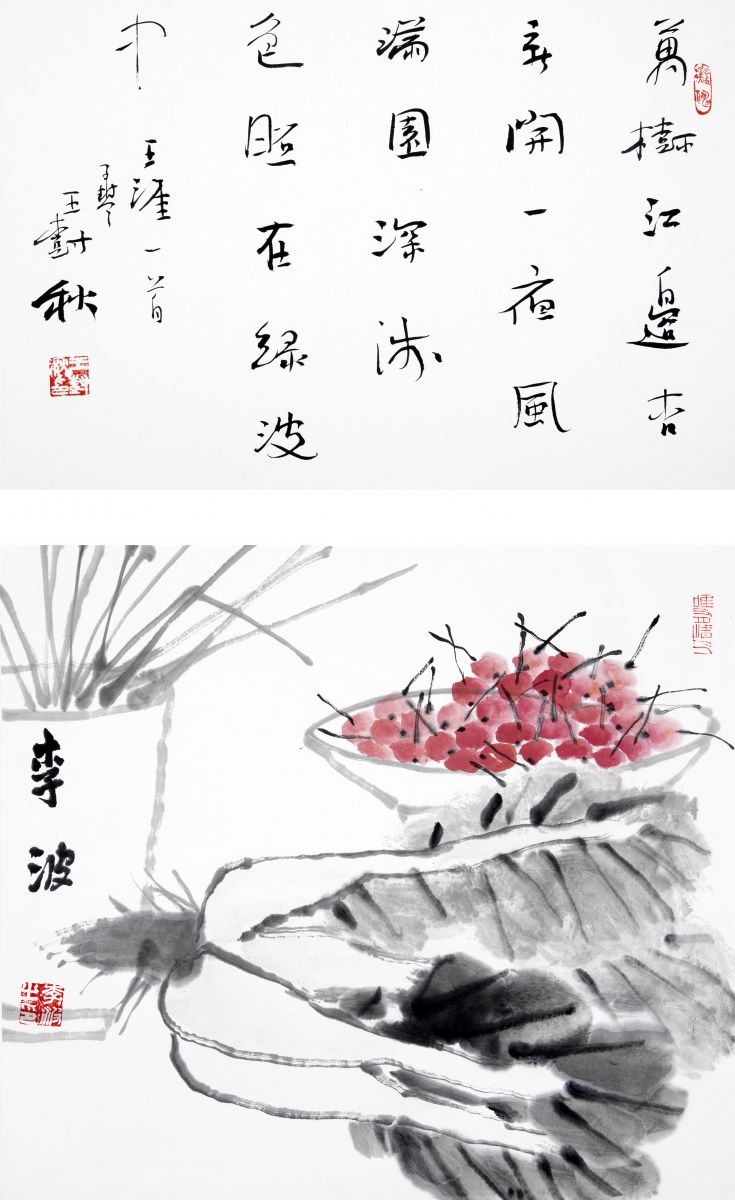 萬樹江邊杏
新開一夜風
滿園深淺
色照在綠波
中
王涯一首
王尌秋
李波
李波之印